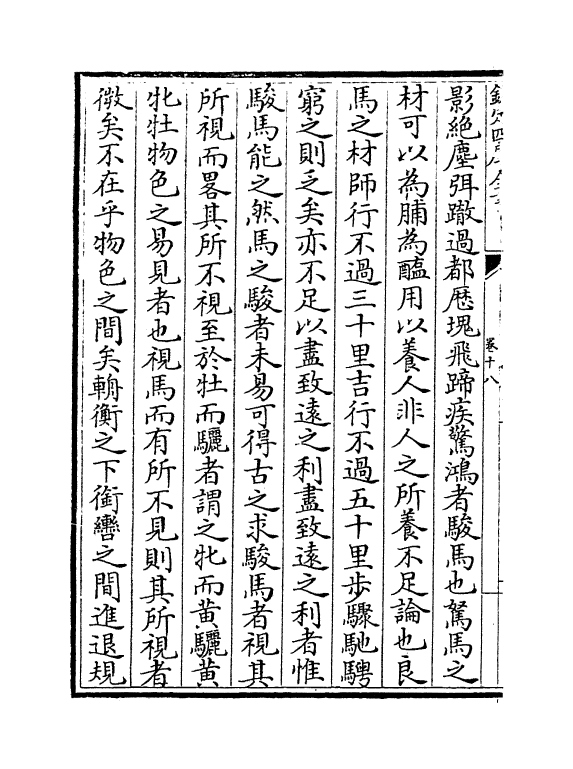 影絶塵弭蹤過都歴塊飛蹄疾驚鴻者駿馬也駑馬之
材可以為脯為醢用以養人非人之所養不足論也良
馬之材師行不過三十里吉行不過五十里歩驟馳騁
窮之則乏矣亦不足以盡致逺之利盡致逺之利者惟
駿馬能之然馬之駿者未易可得古之求駿馬者視其
所視而畧其所不視至於牡而驪者謂之牝而黄驪黄
牝牡物色之易見者也視馬而有所不見則其所視者
微矣不在乎物色之間矣輈衡之下銜轡之間進退規
卷十八